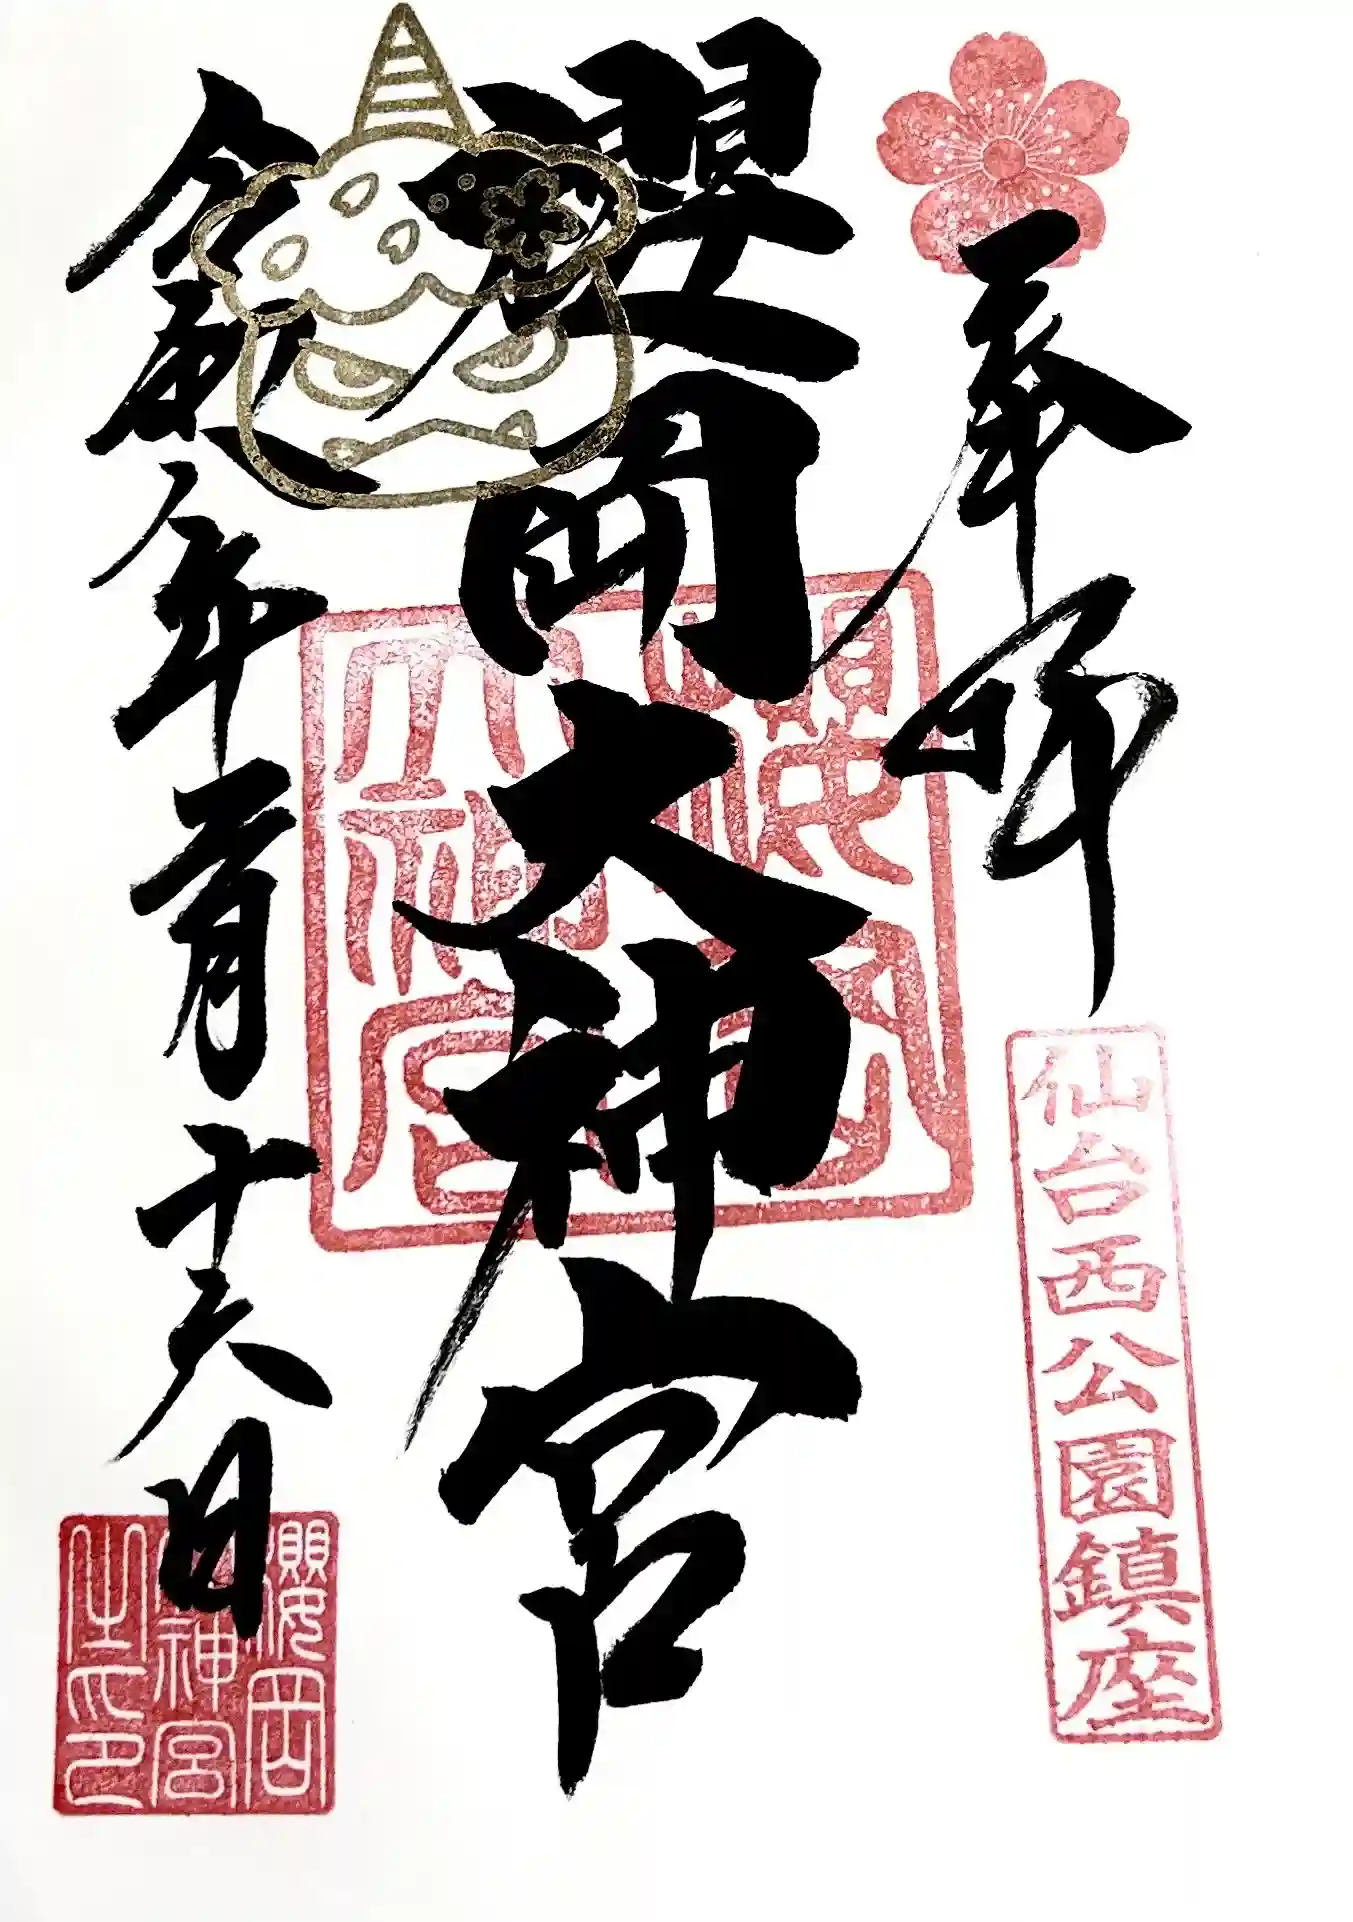 奉拝
仙台西公園鎮座
櫻岡大神宮
櫻岡
大神宮
令和年二月十六日
櫻岡
大神宮
之印